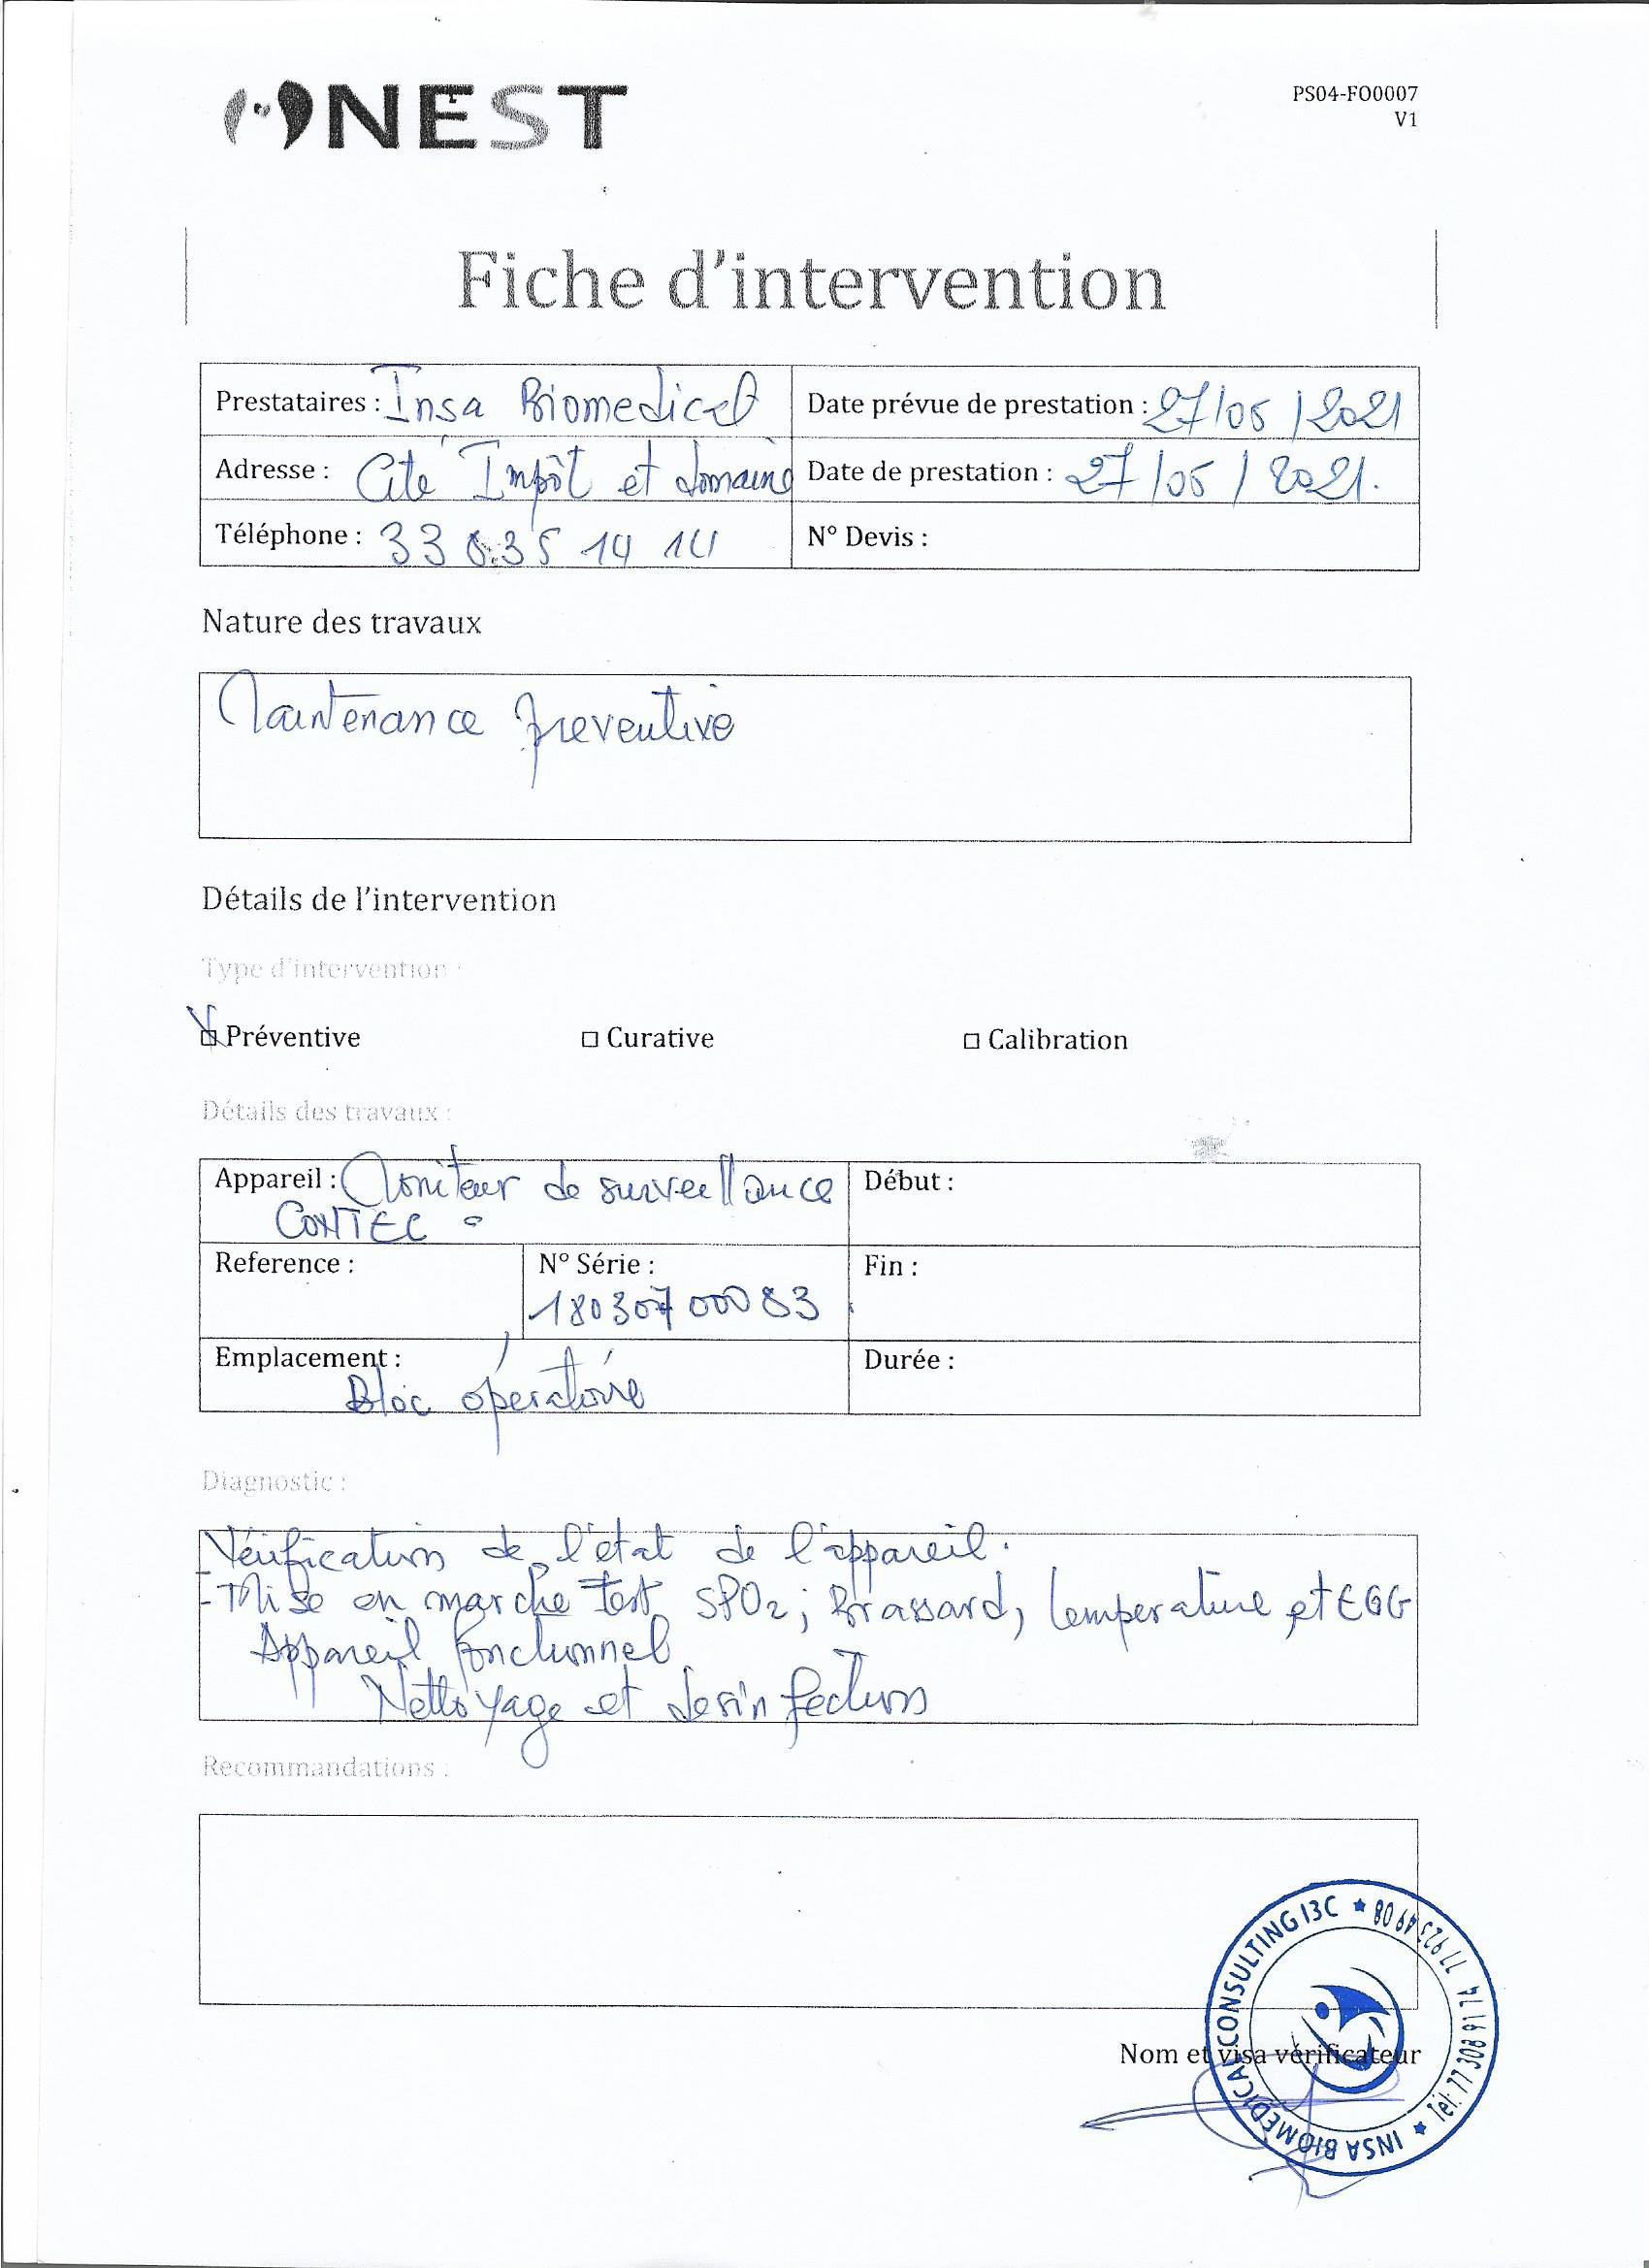 NEST
PS04-FO0007
V1
Fiche d'intervention
Prestataires : Insa Biomedical
Date prévue de prestation : 27/05/2021
Adresse : Cité Impôt et domaine
Date de prestation : 27/05/2021.
Téléphone : 33 835 14 14
N° Devis :
Nature des travaux
Maintenance preventive
Détails de l'intervention
Type d'intervention :
Préventive
Curative
Calibration
Détails des travaux :
Appareil : Moniteur de surveillance
CONTEC
Début :
Reference :
N° Série :
18030700083
Fin :
Emplacement :
Bloc opératoire
Durée :
Diagnostic :
Vérification de l'état de l'appareil.
- Mise en marche test SPO2; Brassard, temperature et EGG
Appareil fonctionnel
Nettoyage et desinfection
Recommandations :
Nom et visa vérificateur
INSA BIOMEDICAL CONSULTING I3C ★ Tél: 77 308 91 74 77 923 49 08 ★